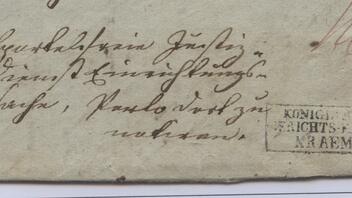 sportelfreie Justiz-
dienst Einrichtungs-
sache, Porto dort zu
notiren.
KÖNIGL
ERICHTS-
KRAEM